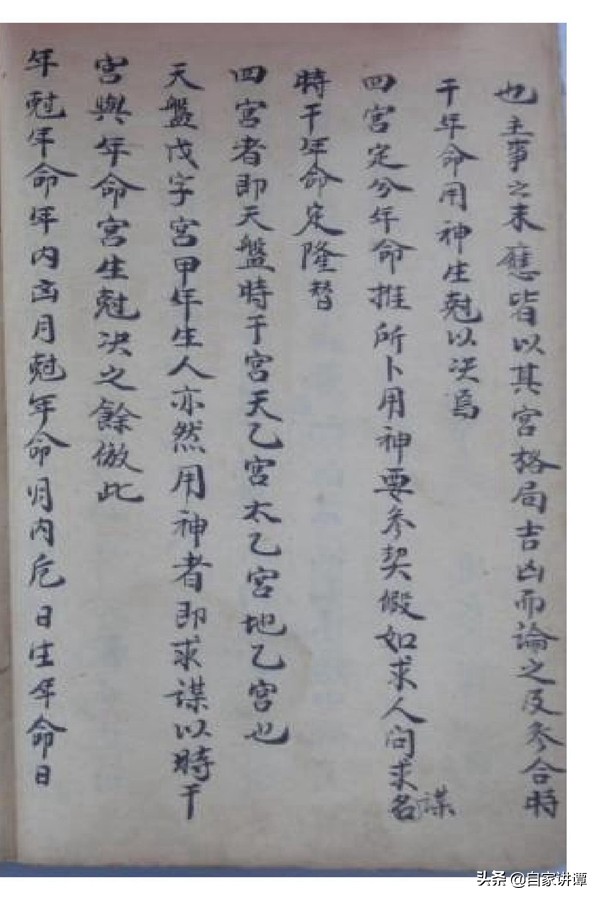 也主事之未應皆以其宮格局吉凶而論之及參合時
干年命用神生尅以决焉
四宮定分年命推所卜用神要參契假如求人問求名謀
時干年命定隆替
四宮者即天盤時干宮天乙宮太乙宮地乙宮也
天盤戊字宮甲年生人亦然用神者即求謀以時干
宮與年命宮生尅决之餘倣此
年尅年命年内凶月尅年命月内危日生年命日
头条 @自家讲谭